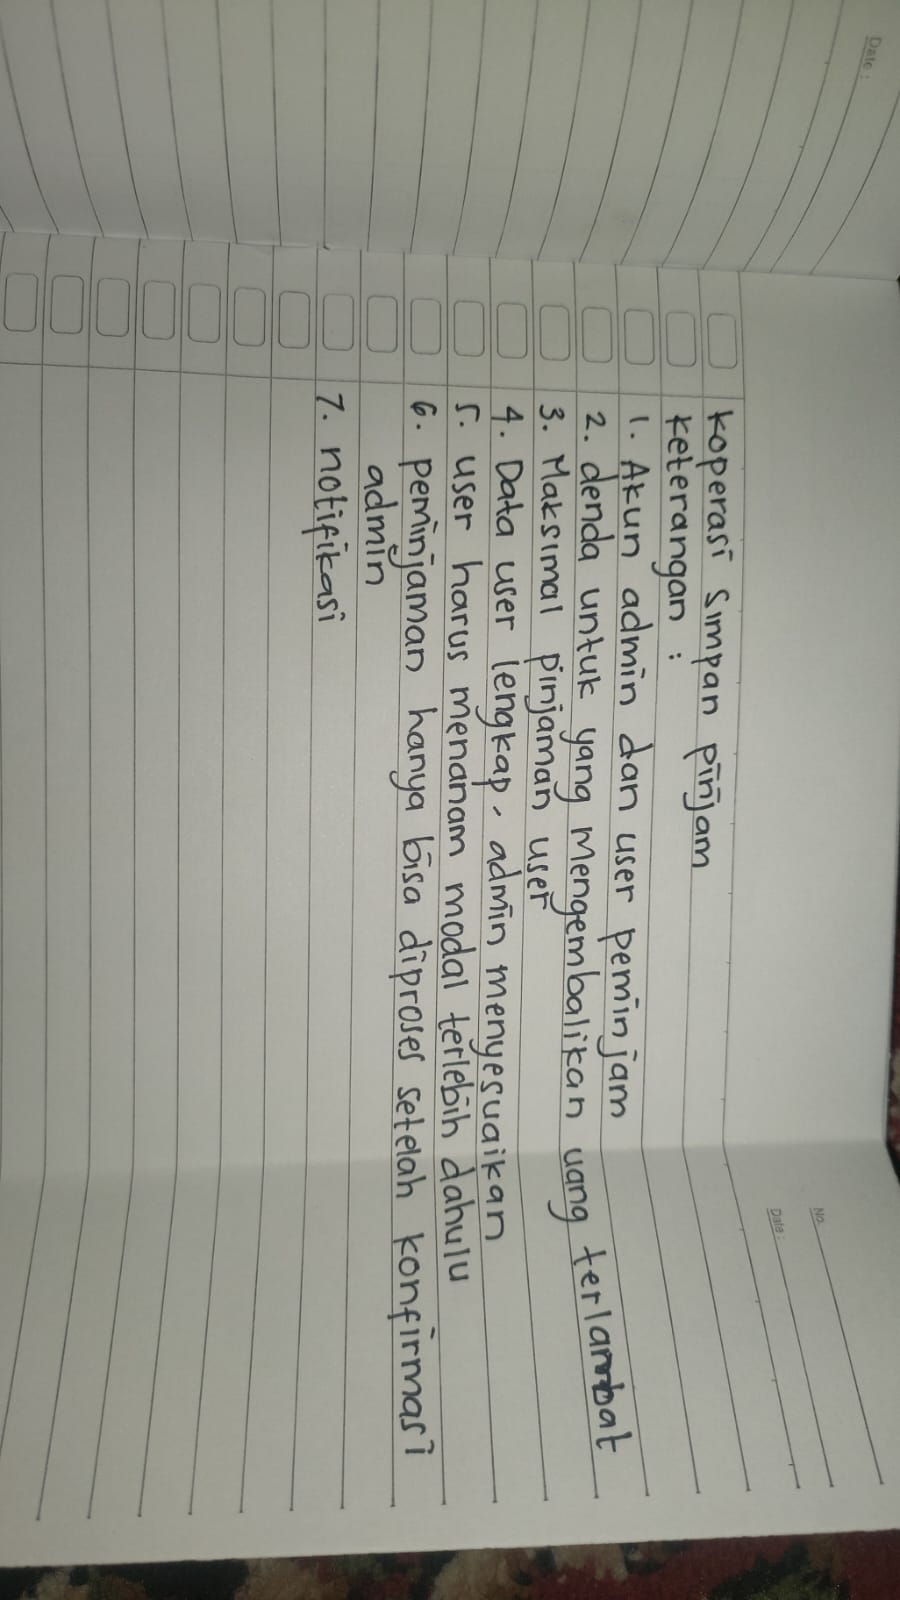 Date :
No.
Date :
koperasi simpan pinjam
keterangan :
1. Akun admin dan user peminjam
2. denda untuk yang mengembalikan uang terlambat
3. Maksimal pinjaman user
4. Data user lengkap, admin menyesuaikan
5. user harus menanam modal terlebih dahulu
6. peminjaman hanya bisa diproses setelah konfirmasi
admin
7. notifikasi